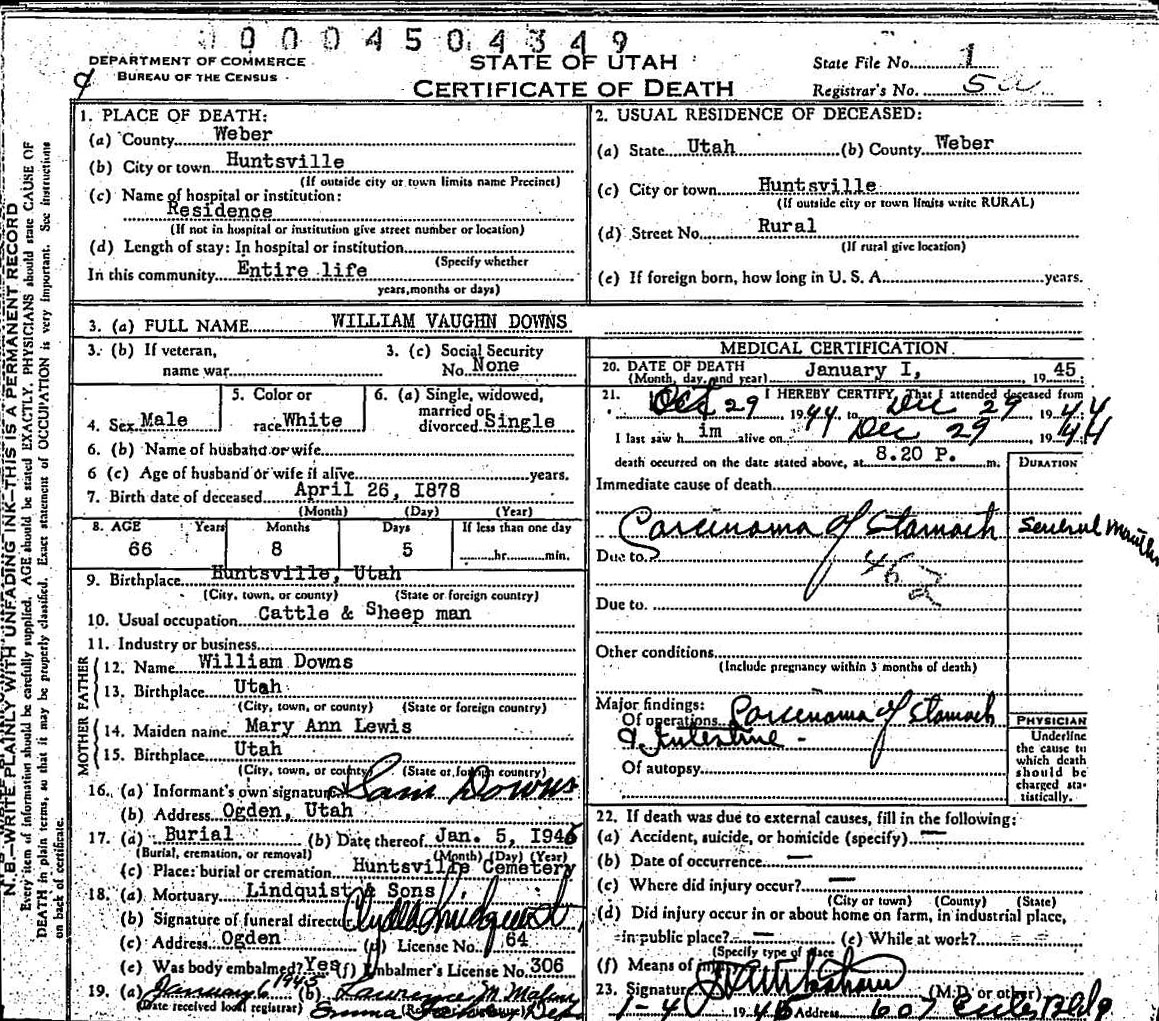 00004504349
DEPARTMENT OF COMMERCE
BUREAU OF THE CENSUS
STATE OF UTAH
CERTIFICATE OF DEATH
State File No. 1
Registrar's No. 5a
N. B.—WRITE PLAINLY WITH UNFADING INK—THIS IS A PERMANENT RECORD
Every item of information should be carefully supplied. AGE should be stated EXACTLY. PHYSICIANS should state CAUSE OF
DEATH in plain terms, so that it may be properly classified. Exact statement of OCCUPATION is very important. See instructions
on back of certificate.
1. PLACE OF DEATH:
(a) County Weber
(b) City or town Huntsville
(If outside city or town limits name Precinct)
(c) Name of hospital or institution:
Residence
(If not in hospital or institution give street number or location)
(d) Length of stay: In hospital or institution
(Specify whether
In this community Entire life
years, months or days)
2. USUAL RESIDENCE OF DECEASED:
(a) State Utah (b) County Weber
(c) City or town Huntsville
(If outside city or town limits write RURAL)
(d) Street No. Rural
(If rural give location)
(e) If foreign born, how long in U. S. A. years.
3. (a) FULL NAME WILLIAM VAUGHN DOWNS
3. (b) If veteran,
name war
3. (c) Social Security
No. None
4. Sex Male
5. Color or
race White
6. (a) Single, widowed,
married or
divorced Single
6. (b) Name of husband or wife
6 (c) Age of husband or wife if alive years.
7. Birth date of deceased April 26, 1878
(Month) (Day) (Year)
8. AGE Years Months Days If less than one day
66 8 5 hr. min.
9. Birthplace Huntsville, Utah
(City, town, or county) (State or foreign country)
10. Usual occupation Cattle & Sheep man
11. Industry or business
FATHER
12. Name William Downs
13. Birthplace Utah
(City, town, or county) (State or foreign country)
MOTHER
14. Maiden name Mary Ann Lewis
15. Birthplace Utah
(City, town, or county) (State or foreign country)
16. (a) Informant's own signature Sam Downs
(b) Address Ogden, Utah
17. (a) Burial (b) Date thereof Jan. 5, 1945
(Burial, cremation, or removal) (Month) (Day) (Year)
(c) Place: burial or cremation Huntsville Cemetery
18. (a) Mortuary Lindquist & Sons
(b) Signature of funeral director Clyde Lindquist
(c) Address Ogden (d) License No. 64
(e) Was body embalmed? Yes (f) Embalmer's License No. 306
19. (a) January 6 1945 (b) Lawrence M.
(Date received local registrar) Emma Dep
MEDICAL CERTIFICATION
20. DATE OF DEATH January I, 1945
(Month, day, and year)
21. I HEREBY CERTIFY, That I attended deceased from
Oct 29 1944 to Dec 29 1944
I last saw him alive on Dec 29 1944
death occurred on the date stated above, at 8.20 P. m.
DURATION
Immediate cause of death
Carcinoma of Stomach Several Months
Due to
46
Due to.
Other conditions
(Include pregnancy within 3 months of death)
Major findings:
Of operations Carcinoma of Stomach
& Intestine -
Of autopsy
PHYSICIAN
Underline
the cause to
which death
should be
charged sta-
tistically.
22. If death was due to external causes, fill in the following:
(a) Accident, suicide, or homicide (specify) —
(b) Date of occurrence —
(c) Where did injury occur? —
(City or town) (County) (State)
(d) Did injury occur in or about home on farm, in industrial place,
in public place? — (e) While at work? =
(Specify type of place
(f) Means of
23. Signature (M.D. or other)
1-4 1945 Address 607 Eccles Bldg